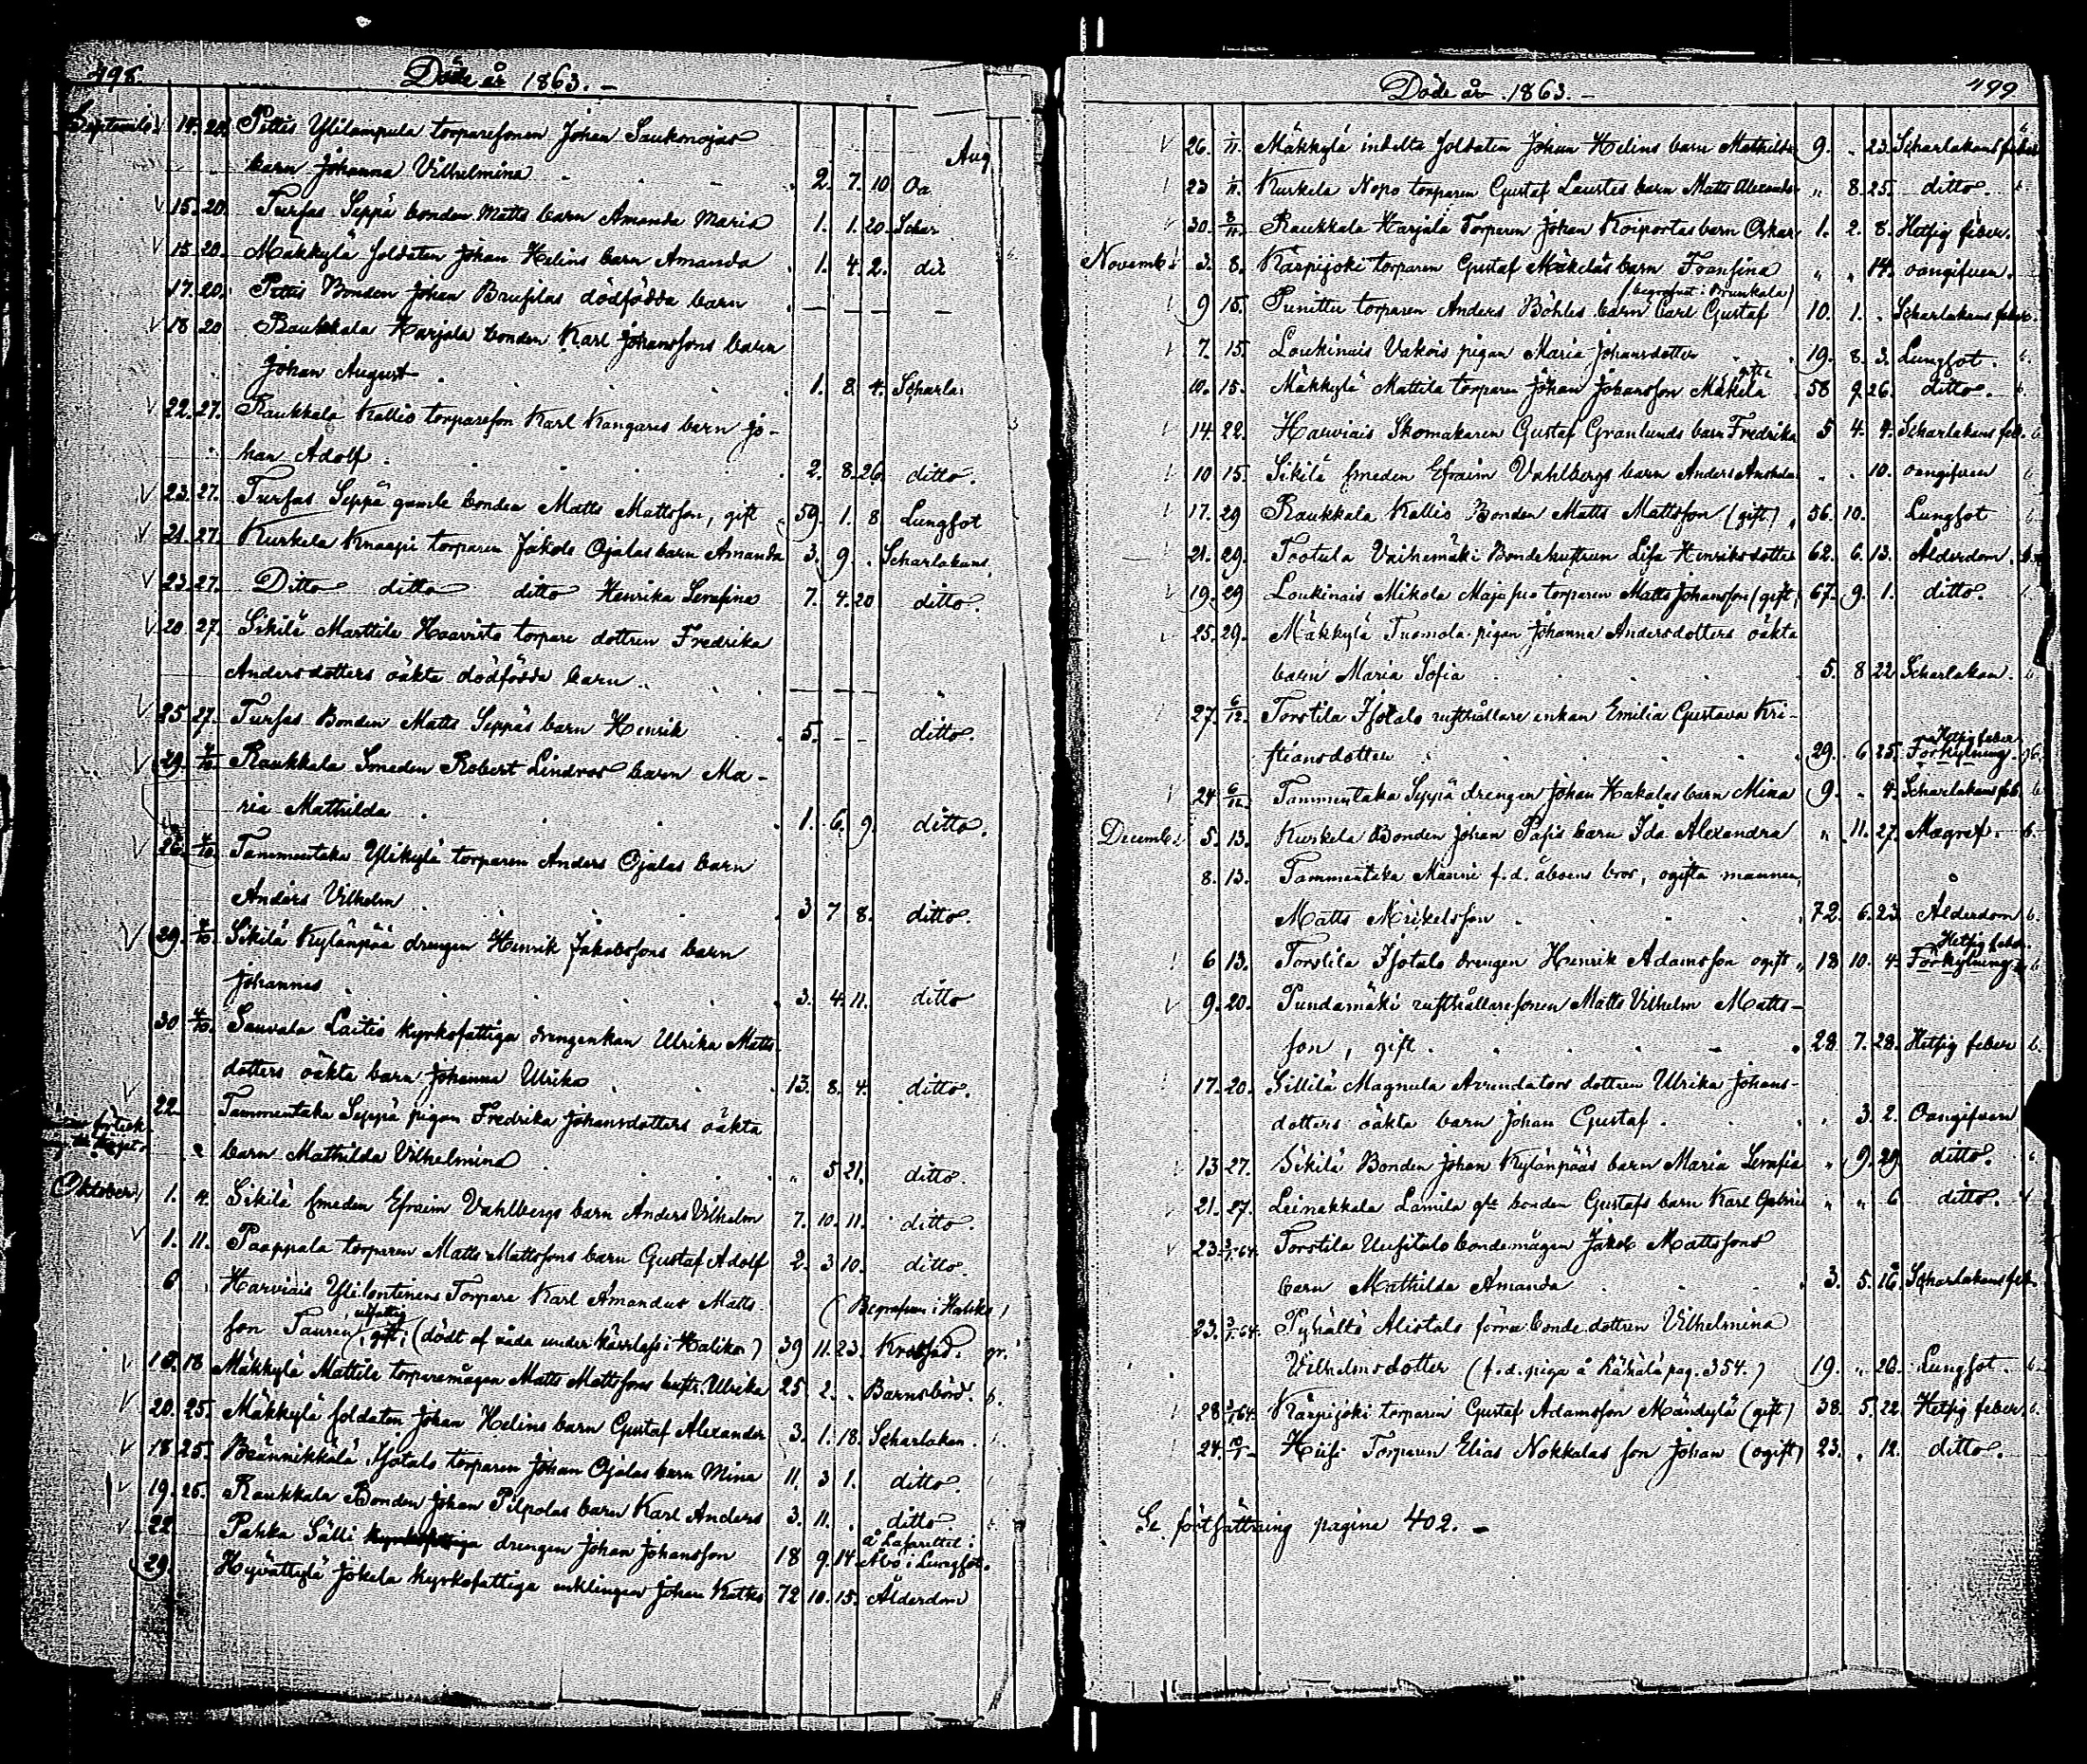 498. Döde år 1863. –
Septemb. 14. 20. Pettis Ylilampula torparesonen Johan Saukonojas
barn Johanna Vilhelmina 2. 7. 10 Oa Aug
15. 20. Tursas Seppä bonden Matts barn Amanda Maria 1. 1. 20. Schar
15 20. Mäkkylä soldaten Johan Helins barn Amanda 1. 4. 2. dit
17. 20. Pettis Bonden Johan Brusilas dödfödda barn – – –
18 20 Raukkala Harjala bonden Karl Johanssons barn
Johan August 1. 8 4. Scharla
22. 27. Raukkala Kallio torpareson Karl Kangares barn Jo-
han Adolf 2. 8. 26. ditto.
23. 27. Turfas Seppä gamle bonden Matts Mattsson, gift 59. 1. 8. Lungsot
21. 27. Kurkela Knaapi torparen Jakob Ojalas barn Amanda 3. 9. . Scharlakans
23. 27. Ditto ditto ditto Henrika Serafina 7. 4. 20 ditto.
20 27. Sikilä Marttila Haavisto torpare dottren Fredrika
Andersdotters oäkta dödfödda barn. – – –
25 27. Turfas Bonden Matts Seppäs barn Henrik 5. – – ditto.
29. 4/10. Raukkala Smeden Robert Lindroos barn Ma-
ria Mathilda 1. 6. 9. ditto.
26. 4/10. Tammentaka Ylikylä torparen Anders Ojalas barn
Anders Vilhelm 3 7 8. ditto.
29. 4/10. Sikilä Kylänpää drengen Henrik Jakobssons barn
Johannes 3. 4. 11. ditto
30 4/10. Sauvala Laitis kyrkofattiga drengenkan Ulrika Matts-
dotters oäkta barn Johanna Ulrika 13. 8. 4. ditto.
22. Tammentaka Seppä pigan Fredrika Johansdotters oäkta
barn Mathilda Vilhelmina „ 5 21. ditto.
Oktober 1. 4. Sikilä smeden Efraim Vahlbergs barn Anders Vilhelm 7. 10. 11. ditto.
1. 11. Paappala torparen Matts Mattssons barn Gustaf Adolf 2. 3 10. ditto.
6 Harviais Ylilontinens Torpare Karl Amandus Matts-
( Begrafven i Haliko )
son Tauren utfattig gift, (dödt af våda under kärrlass i Haliko) 39 11. 23. Krossad. gr.
18. Mäkkylä Mattila torparemågen Matts Mattssons hustr. Ulrika 25 2. . Barnsbörd. b.
20. 25. Mäkkylä soldaten Johan Helins barn Gustaf Alexander 3. 1. 18. Scharlakan.
18. 25. Isotalo torparen Johan Ojalas barn Mina 11. 3 1. ditto.
19. 25. Raukkala Bonden Johan Pilpolas barn Karl Anders 3. 11. . ditto
22. Pahka Sälli drengen Johan Johansson 18 9. 14 å Lasarettet i
Åbo i Lungsot.
29. Hyvättylä Jokela kyrkofattiga enklingen Johan Katko 72 10. 15. Ålderdom
Döde år 1863. – 499
26. 1/11. Mäkkylä indelta soldaten Johan Helins barn Mathilda 9. . 23. Scharlakansfeber
23 1/11. Kurkela Nopo torparen Gustaf Laurtes barn Matts Alexander „ 8. 25. ditto.
30. 8/11. Raukkala Harjala Torparen Johan Koiportas barn Oskar 1. 2. 8. Hetsig feber.
Novemb. 3. 8. Kärpijoki torparen Gustaf Mäkeläs barn Joansina „ „ 14. oangifven.
(begrafvet i Prunkala)
9 15. Punittu torparen Anders Böhles barn Carl Gustaf 10. 1. . Scharlakans feber.
7. 15. Loukinais Vakois pigan Maria Johansdotter 19. 8. 3. Lungsot.
10. 15. Mäkkylä Mattila torparen Johan Johansson Mäkelä gifte 58 9. 26. ditto.
14. 22. Harviais Skomakaren Gustaf Granlunds barn Fredrika 5 4. 4. Scharlakans feb. b
10 15. Sikilä smeden Efraim Vahlbergs barn Anders . . 10. oangifven
17. 29 Raukkala Kallio Bonden Matts Mattsson (gift) 56. 10. Lungsot
21. 29. Tootula Vaihemäki Bondehustrun Lisa Henriksdotter 62. 6. 13. Ålderdom.
19. 29 Loukinais Mikola Majasuo torparen Matts Johansson (gift) 67. 9. 1. ditto.
25. 29. Mäkkylä Tuomola pigan Johanna Andersdotters oäkta
barn Maria Sofia 5. 8 22. Scharlakan.
27. 6/12. Torstila Isotalo rusthållare enkan Emilia Gustava Kri-
stiansdotter 29. 6 25. Hetsig feber Förkylning
24 6/12. Tammentaka Seppä drengen Johan Hakalas barn Mina 9. . 4. Scharlakansfeb.
Decemb. 5. 13. Kurkela Bonden Johan Papis barn Ida Alexandra „ 11. 27. Magref. b.
8. 13. Tammentaka Manni f.d. åboens bror, ogifta mannen,
Matts Mickelsson 72. 6. 23. Ålderdom b.
6 13. Torstila Isotalo drengen Henrik Adamsson ogift „ 18 10. 4. Hetsig feber. Förkylning b
9. 20. Pundamäki rusthållaresonen Matts Vilhelm Matts-
son, gift 28 7. 28. Hetsig feber b.
17. 20. Sillilä Magnula Arrendators dottren Ulrika Johans-
dotters oäkta barn Johan Gustaf „ 3. 2. Oangifven
13 27. Sikilä Bonden Johan Kylänpääs barn Maria Serafia „ 9. 29. ditto.
21. 27. Leinakkala Lamila gle bonden Gustafs barn Karl Gabriel „ „ 6 ditto.
23 3/1.64. Torstila Uusitalo bondemågen Jakob Mattssons
barn Mathilda Amanda 3. 5. 16. Scharlakansfeb.
23. 3/1.64. Pyhältö Alistalo förra bonde dottren Vilhelmina
Vilhelmsdotter (f.d. piga å pag. 354.) 19. „ 26. Lungsot.
28 3/1.64. Kärpijoki torparen Gustaf Adamsson Mändylä (gift) 38. 5. 22. Hetsig feber. b.
24. 10/1 – Hiisi Torparen Elias Nokkalas son Johan (ogift) 23. . 12. ditto.
Se fortsättning pagina 402. –